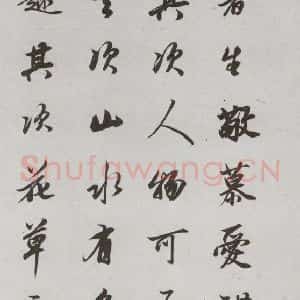 者生敬慕愛
其次人物可
次山水有
趣其次花草
Shufawang.CN